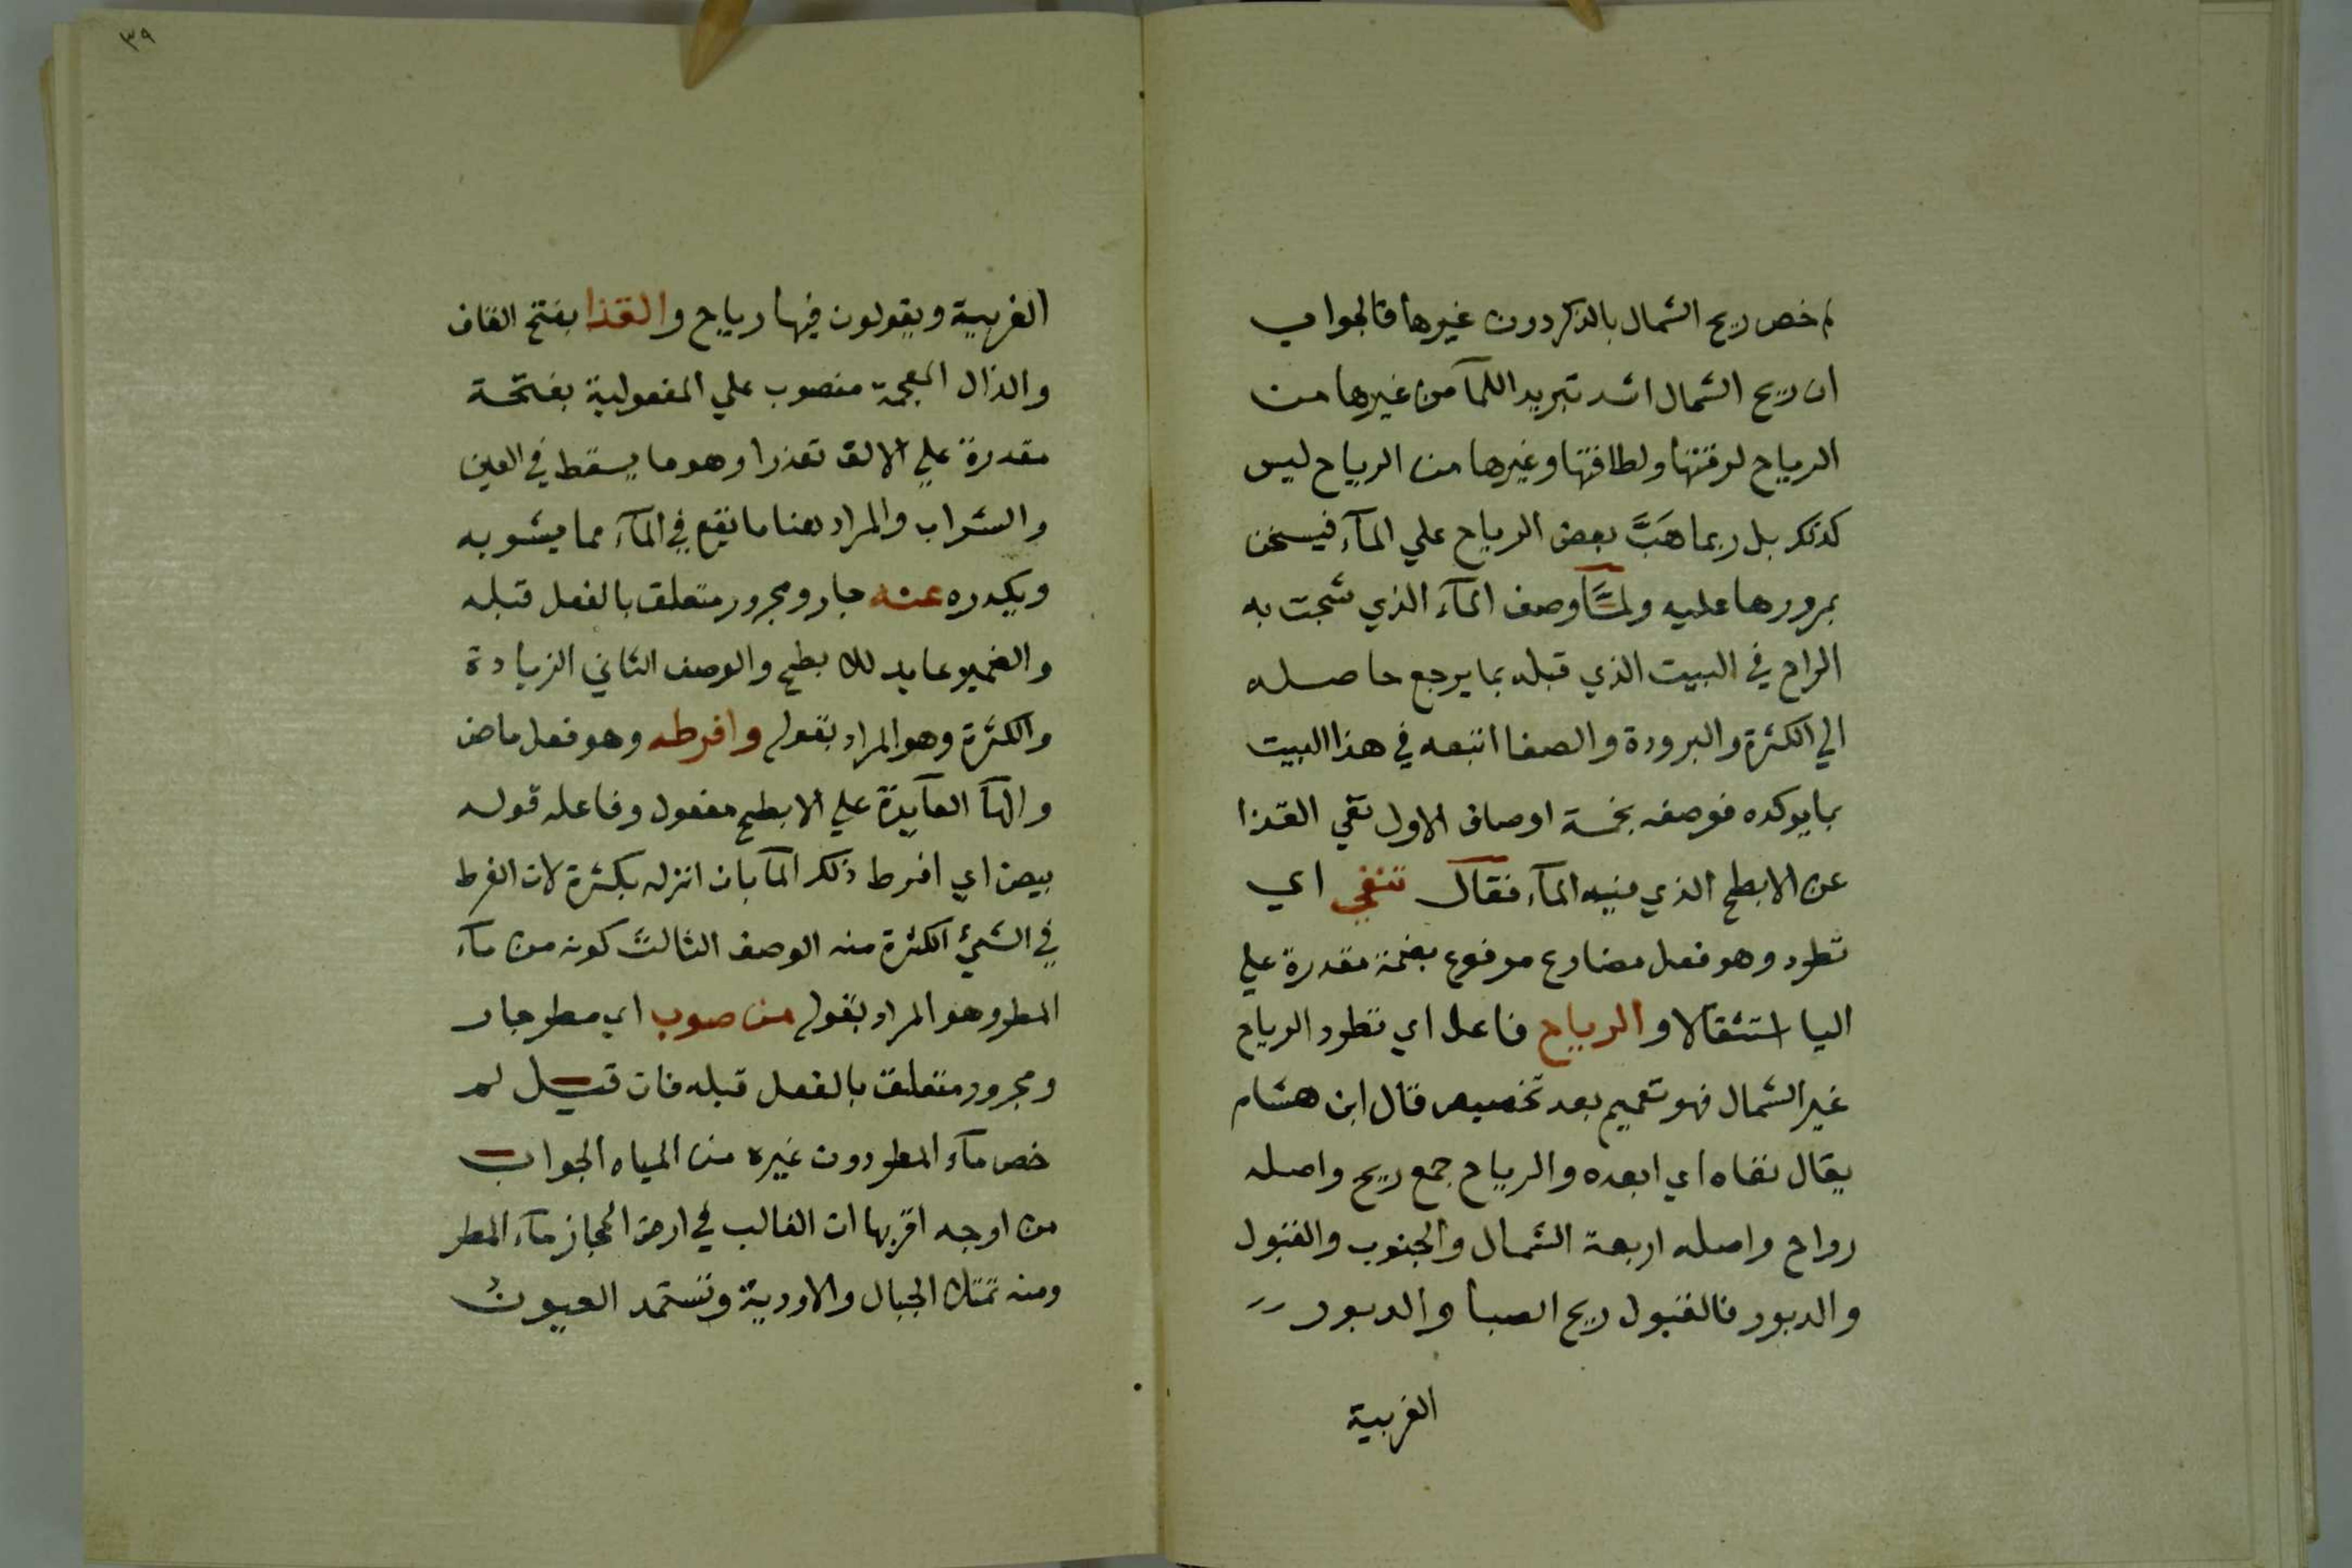 لم خص ريح الشمال بالذكر دون غيرها فالجواب
ان ريح الشمال اشد تبريدا للمآ من غيرها من
الرياح لرقتها ولطافتها وغيرها من الرياح ليس
كذلك بل ربما هَبَّ بعض الرياح علي المآء فيسخن
بمرورها عليه ولمَّا وصف المآء الذي شجت به
الراح في البيت الذي قبله بما يرجع حاصله
الي الكثرة والبرودة والصفا اتبعه في هذا البيت
بما يوكده فوصفه بخمسة اوصاف الاول نفي القذا
عن الابطح الذي فيه المآء فقال تنفي اي
تطرد وهو فعل مضارع مرفوع بضمة مقدرة علي
اليا استثقالا والرياح فاعل اي تطرد الرياح
غير الشمال فهو تعميم بعد تخصيص قال ابن هشام
يقال نفاه اي ابعده والرياح جمع ريح واصله
رواح واصله اربعة الشمال والجنوب والقبول
والدبور فالقبول ريح الصبا والدبور
الغربية
٣٩
الغربية ويقولون فيها رياح والقذا بفتح القاف
والذال المعجمة منصوب علي المفعولية بفتحة
مقدرة علي الالف تعذرا وهو ما يسقط في العين
والشراب والمراد هنا ما يقع في المآء مما يشوبه
ويكدره عنه جار ومجرور متعلق بالفعل قبله
والضمير عايد للابطح والوصف الثاني الزيادة
والكثرة وهو المراد بقوله وافرطه وهو فعل ماض
والهآ العآيدة علي الابطح مفعول وفاعله قوله
بيض اي افرط ذلك المآ بان انزله بكثرة لان الفرط
في الشيئ الكثرة منه الوصف الثالث كونه من مآء
المطر وهو المراد بقوله من صوب اي مطر جار
ومجرور متعلق بالفعل قبله فان قيل لم
خص مآء المطر دون غيره من المياه الجواب
من اوجه اقربها ان الغالب في ارض الحجاز مآء المطر
ومنه تمتلئ الجبال والاودية وتستمد العيونُ